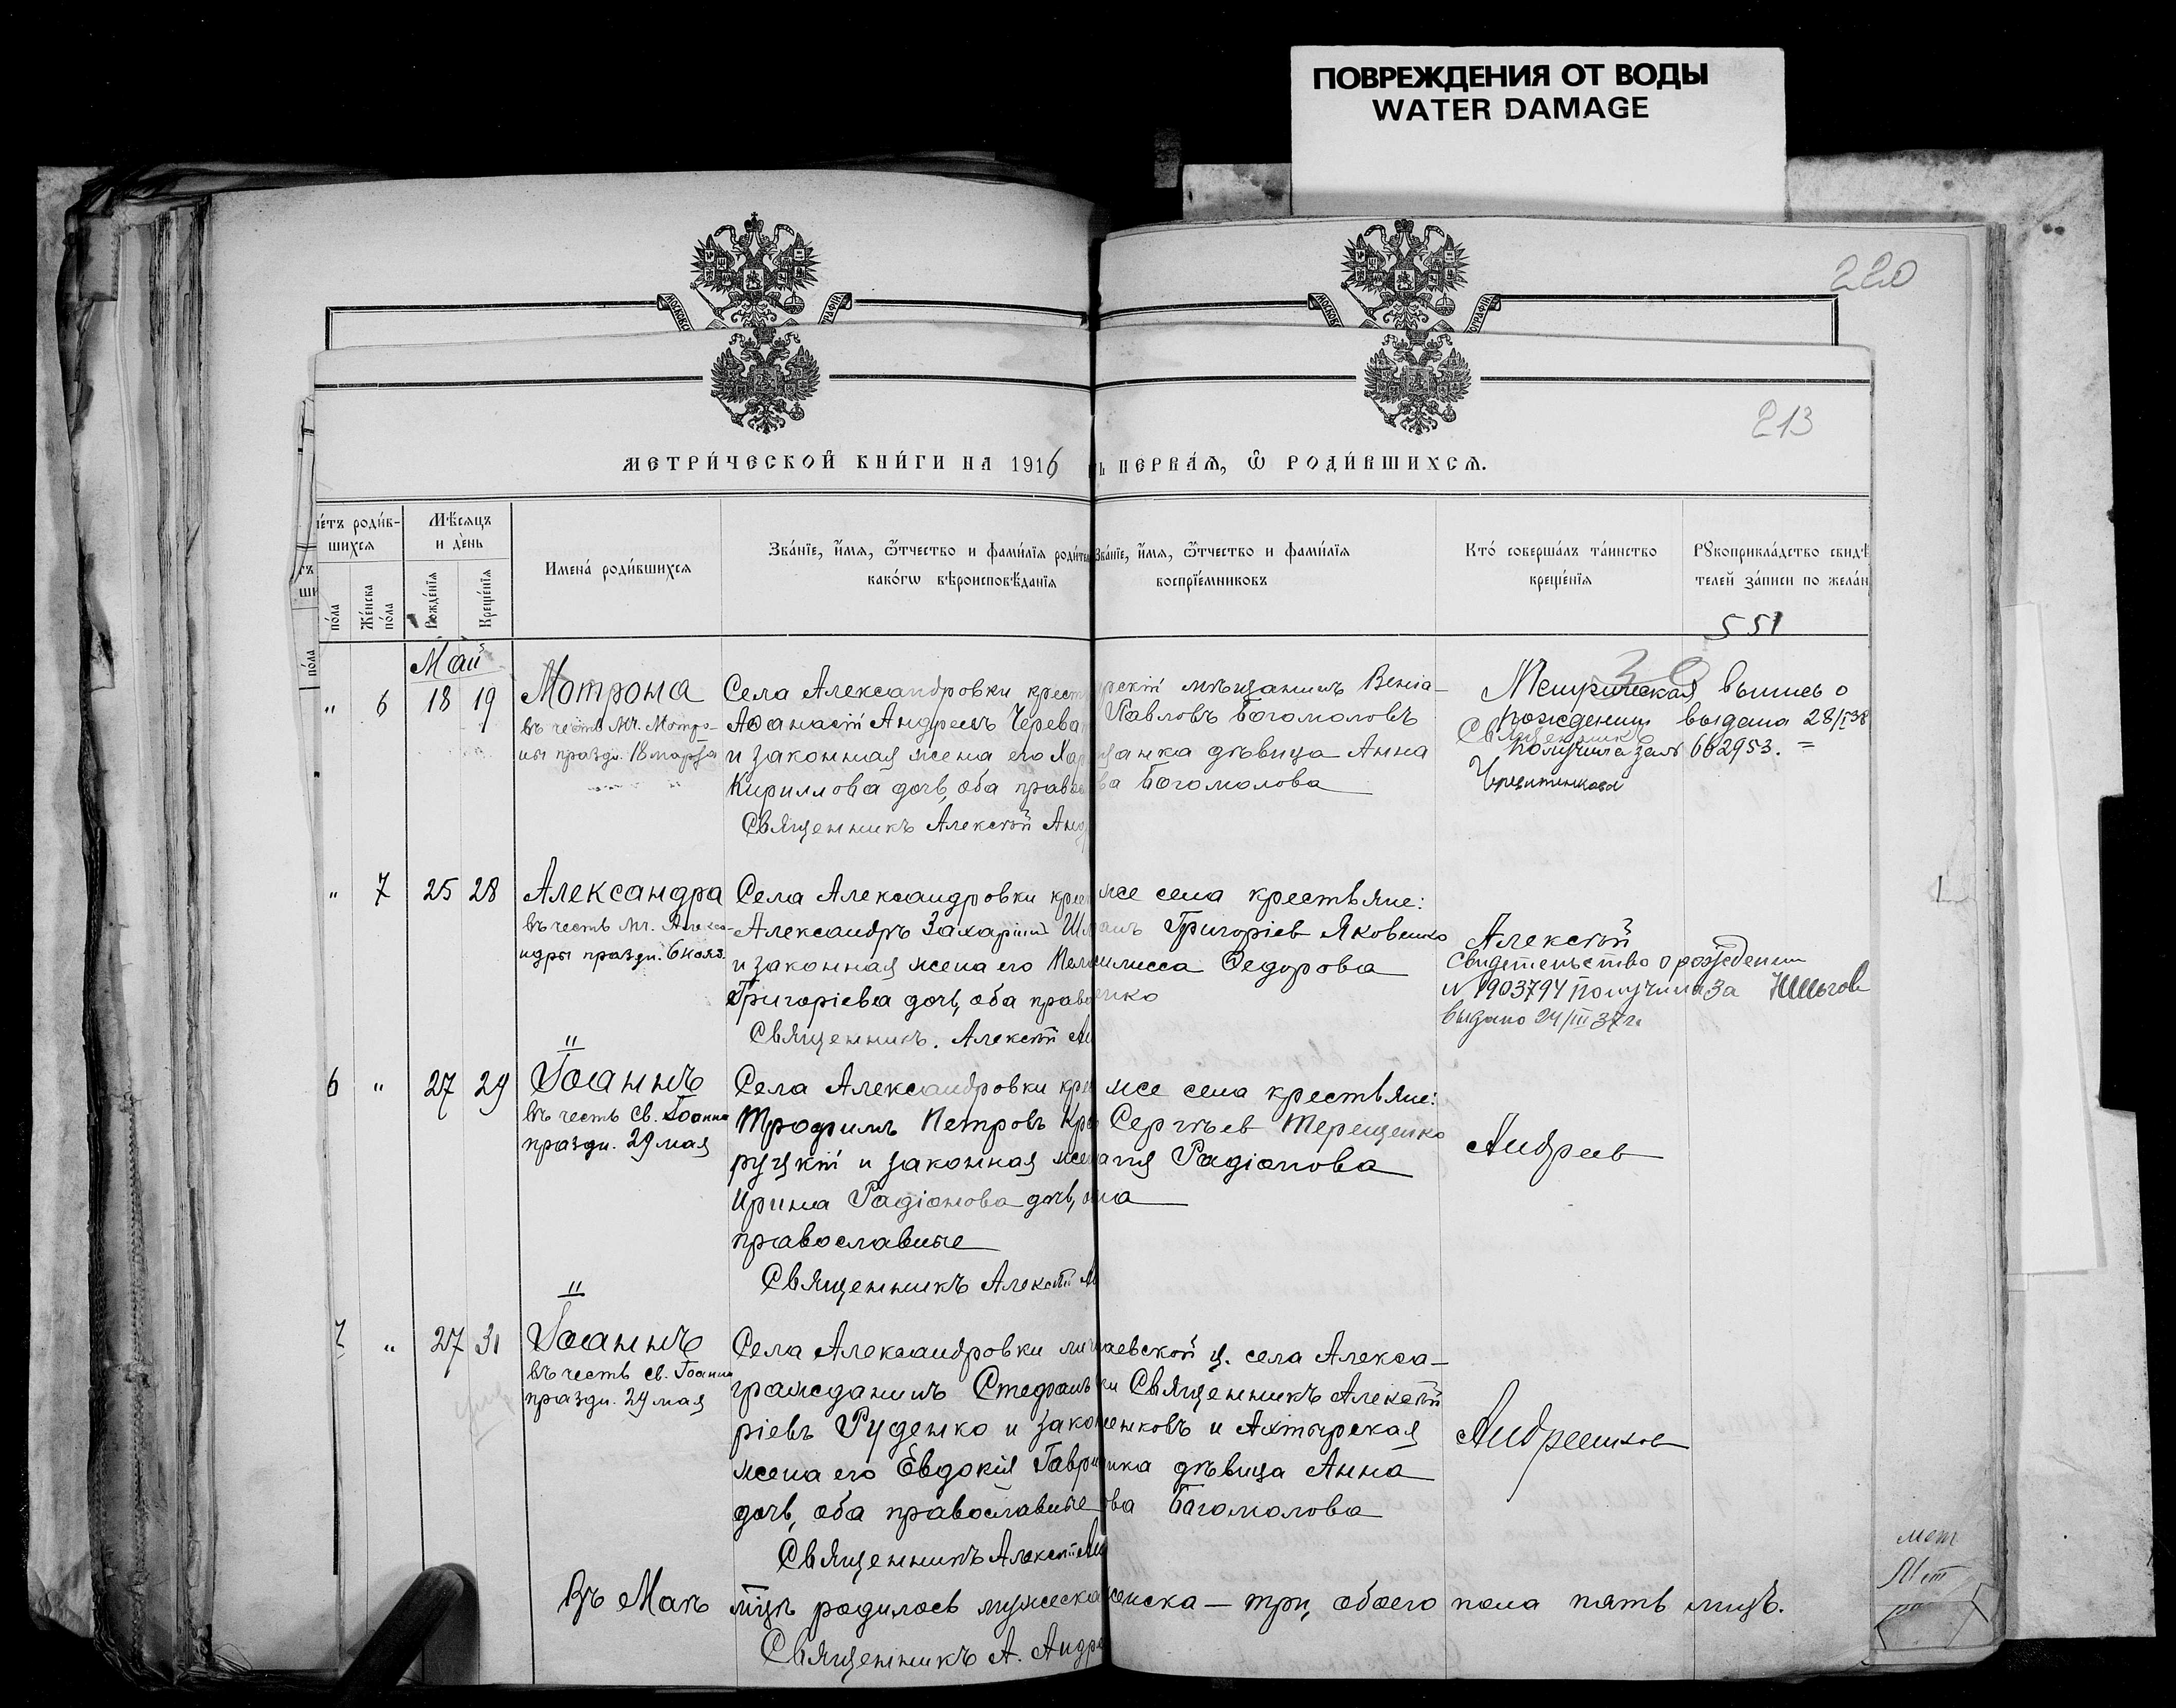 ПОВРЕЖДЕНИЯ ОТ ВОДЫ
WATER DAMAGE
220
213
МЕТРИ́ЧЕСКОЙ КНИ́ГИ НА 1916
ПЕРВА́Ѧ, Ѿ РОДИ́ВШИХСѦ.
че́тъ роди́в-
шихсѧ
по́ла
Же́нска по́ла
Мѣ́сѧцъ
и де́нь
Рожде́нїѧ
Креще́нїѧ
Имена̀ роди́вшихсѧ
Зва́нїе, и҆́мѧ, ѻ҆́тчество и фами́лїѧ роди́тел
како́гѡ вѣроисповѣ́данїѧ
Зва́нїе, и҆́мѧ, ѻ҆́тчество и фами́лїѧ
воспрїе́мниковъ
Кто̀ соверша́лъ та́инство
креще́нїѧ
Рꙋкоприкла́дство свидѣ
телей за́писи по жела́н
551
Май
" 6 18 19
Мотрона
въ честь мч. Мотро-
ны празд. 18 марта
Села Александровки крест
Аѳанасій Андреевъ Черева
и законная жена его Хар
Кириллова дочь, оба прав
Священникъ Алексѣй Анд
рскій мѣщанинъ Веніа-
Павловъ Богомоловъ
щанка дѣвица Анна
ва Богомолова
Метрическая выпись о
рождении выдана 28/I 38
Священникъ
получила залъ 662953. =
" 7 25 28
Александра
въ честь мч. Алекса-
ндры праздн. 6 нояб.
Села Александровки крес
Александръ Захаріинъ Ш
и законная жена его Мела
Григоріева дочь, оба право
Священникъ. Алексѣй Ан
же села крестьяне:
Григоріев Яковенко
илисса Ѳедорова
енко
Алексѣй
Свидетельство о рождении
N 1903794 получила за
выдано 24/III 37 г.
6 " 27 29
Іоаннъ
въ честь св. Іоанна
праздн. 29 мая
Села Александровки кре
Трофимъ Петровъ Кра
руцкій и законная жен
Ирина Радіонова дочь, о
православные
Священникъ Алексѣй А
же села крестьяне:
Сергѣев Терещенко
Радіонова
на
Андреев
7 " 27 31
Іоаннъ
въ честь св. Іоанна
праздн. 29 мая
Села Александровки лич
гражданинъ Стефанъ
ріевъ Руденко и зако
жена его Евдокія Гаври
дочь, оба православные
Священникъ Алексѣй Ан
аевской ц. села Алекса-
ки Священникъ Алексѣй
енковъ и Ахтырская
нка дѣвица Анна
ова Богомолова
Андреенков
Въ Маѣ мцѣ родилось мужеска
женска — три, обоего пола пять лицъ.
Священникъ А. Андре